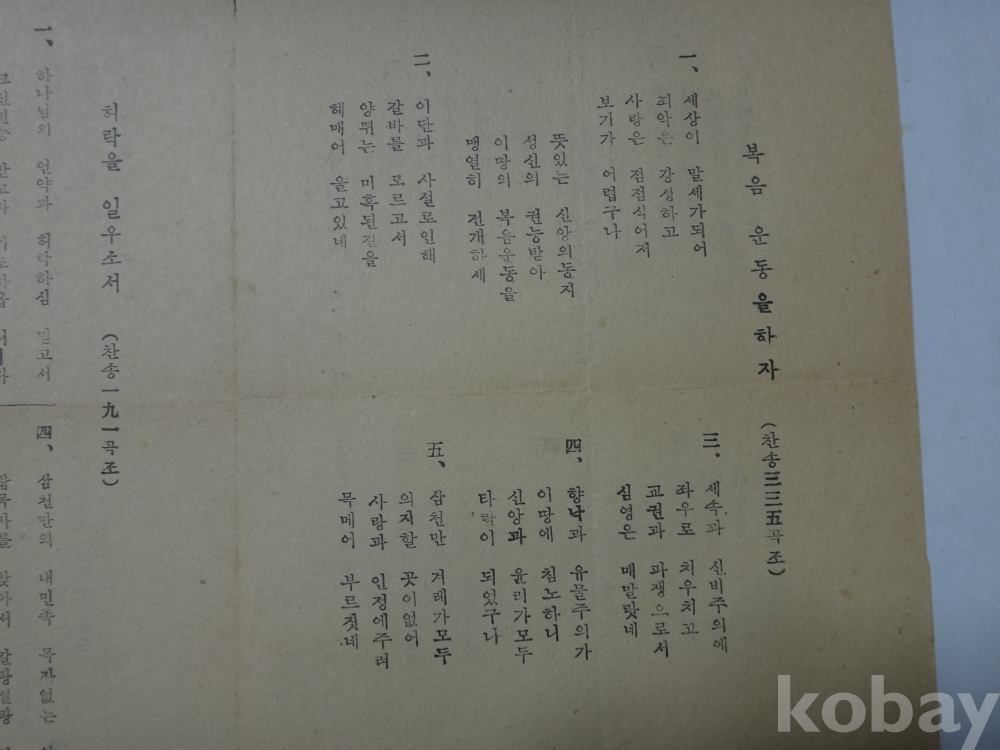 복음 운동을하자 (찬송三三五곡조)
一、 세상이 말세가되어
죄악은 강성하고
사랑은 점점식어져
보기가 어렵구나
뜻있는 신앙의동지
성신의 권능받아
이땅의 복음운동을
맹열히 전개하세
二、 이단과 사설로인해
갈바를 모르고서
양뛰는 미혹된길을
헤매어 울고있네
三、 세속과 신비주의에
좌우로 치우치고
교권과 파쟁으로서
심영은 매말랏네
四、 향낙과 유물주의가
이땅에 침노하니
신앙과 윤리가모두
타락이 되었구나
五、 삼천만 겨레가모두
의지할 곳이없어
사랑과 인정에주려
목메어 부르짓네
허락을 일우소서 (찬송一九一곡조)
一、 하나님의 언약과 허락하심 믿고서
四、 삼천만의 대민족 목자없는
kobay